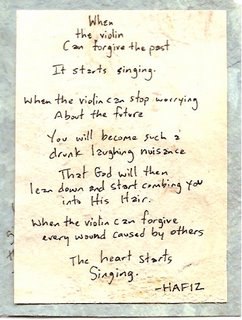 When
the violin
Can forgive the past
It starts singing.
When the violin can stop worrying
About the future
You will become such a
drunk laughing nuisance
That God will then
lean down and start combing you
into His Hair.
When the violin can forgive
every wound caused by others
The heart starts
Singing.
-HAFIZ